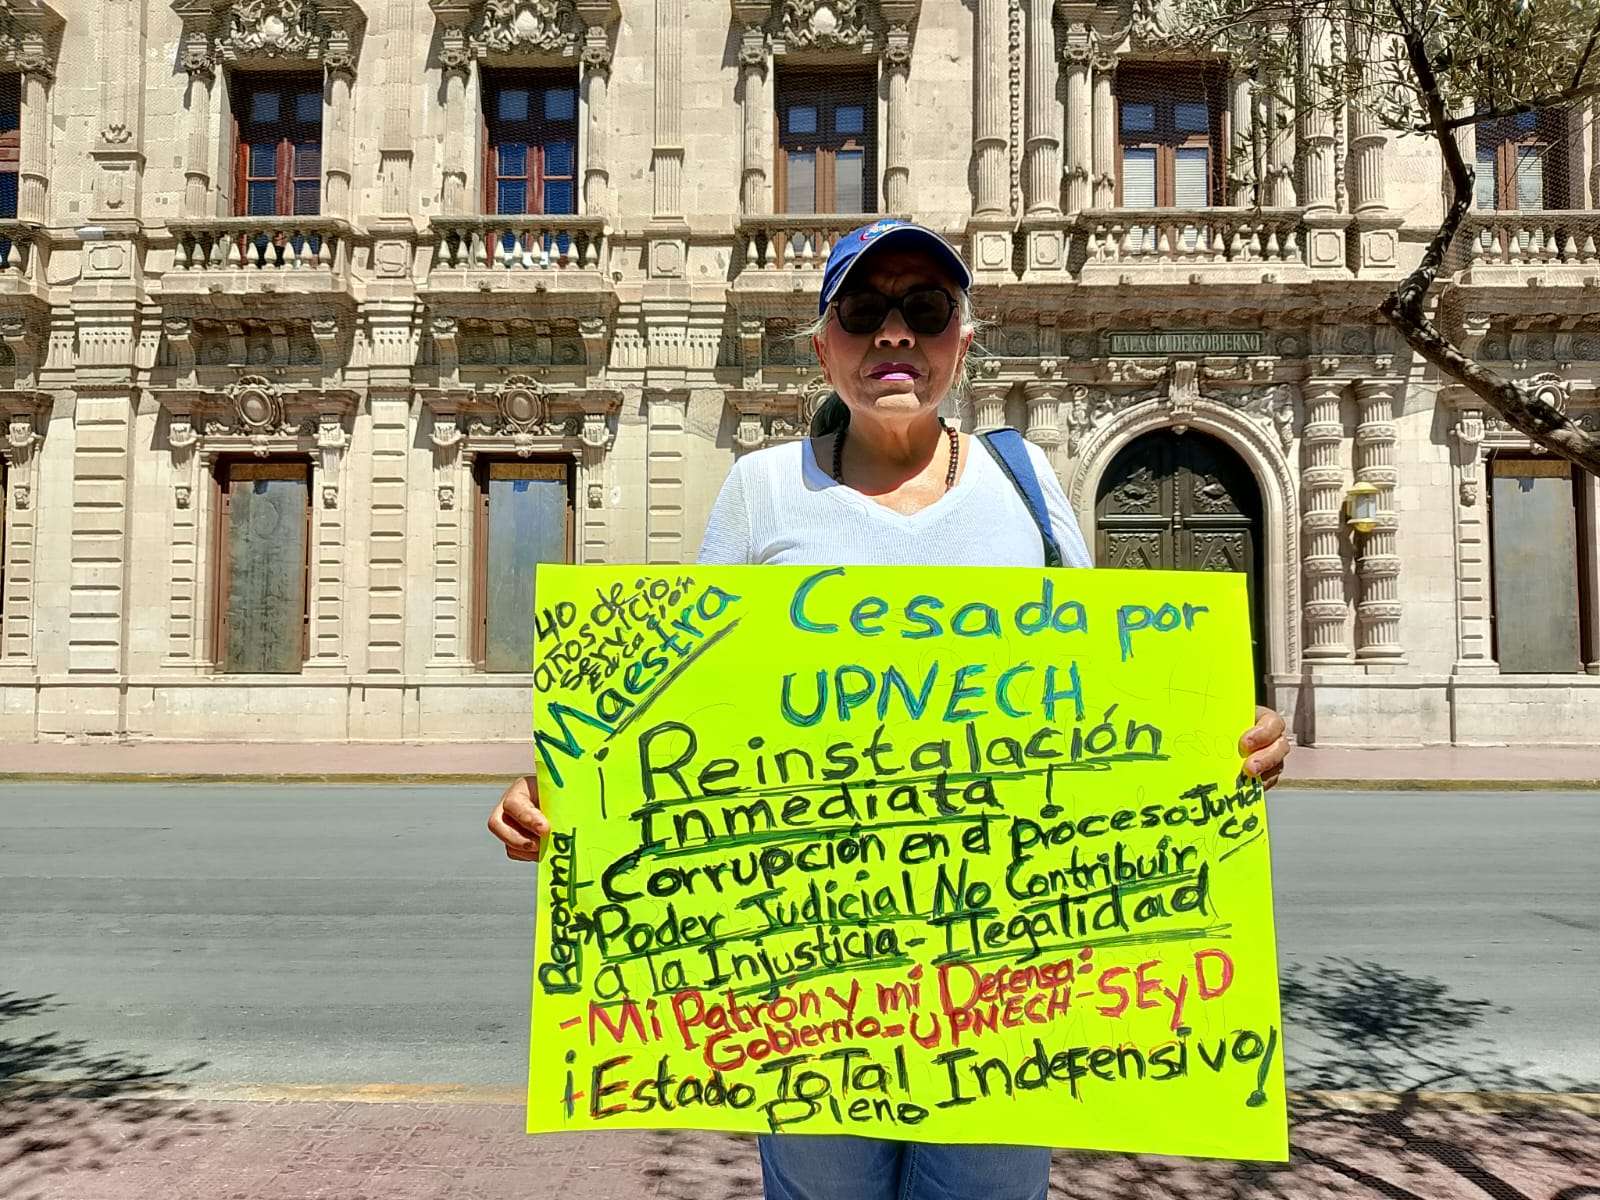 PALACIO DE GOBIERNO
40
años de
servicio
Educación
Maestra
Cesada por
UPNECH
¡Reinstalación
Inmediata!
-Corrupción en el proceso-Jurídi
co
Reforma
→Poder Judicial No Contribuir
a la Injusticia-Ilegalidad
-Mi Patrón y mi Defensa:
Gobierno-UPNECH-SEyD
¡-Estado Total Indefensivo!
Pleno